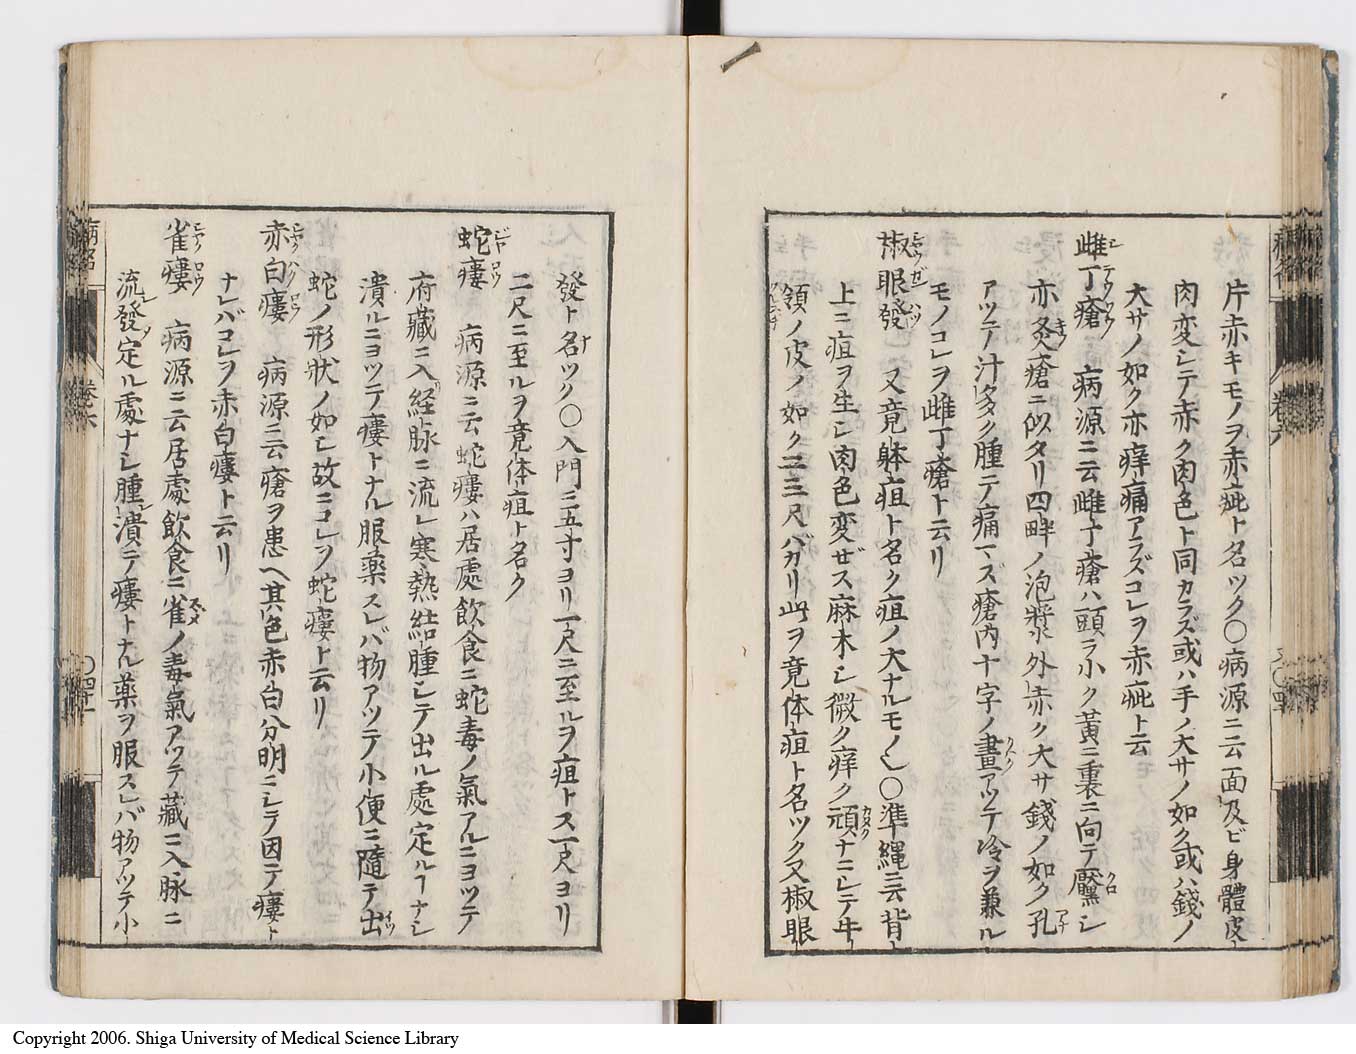 片赤キモノヲ赤疵ト名ツク〇病源ニ云面及ビ身體皮
肉変シテ赤ク肉色ト同カラズ或ハ手ノ大サノ如ク或ハ錢ノ
大サノ如ク亦痒痛アラズコレヲ赤疵ト云
雌丁瘡 病源ニ云雌丁瘡ハ頭ラ小ク黃ニ裏ニ向テ黶シ
亦灸瘡ニ似タリ四畔ノ泡漿外赤ク大サ錢ノ如ク孔
アツテ汁多ク腫テ痛マズ瘡内十字ノ畫アツテ冷ヲ兼ル
モノコレヲ雌丁瘡ト云リ
椒眼發 又竟躰疽ト名ク疽ノ大ナルモノ〇準縄ニ云背ト
上ニ疽ヲ生シ肉色変ゼス麻木シ微ク痒ク頑ナニシテ牛
領ノ皮ノ如ク二三尺バカリ此ヲ竟体疽ト名ツク又椒眼
發ト名ツク〇入門ニ五寸ヨリ一尺ニ至ルヲ疽トス一尺ヨリ
二尺ニ至ルヲ竟体疽ト名ク
蛇瘻 病源ニ云蛇瘻ハ居處飲食ニ蛇毒ノ氣アルニヨツテ
府藏ニ入經脉ニ流レ寒熱結腫シテ出ル處定ルナシ
潰ルニヨツテ瘻トナル服藥スレバ物アツテ小便ニ隨テ出
蛇ノ形狀ノ如シ故ニコレヲ蛇瘻ト云リ
赤白瘻 病源ニ云瘡ヲ患ヘ其色赤白分明ニシテ因テ瘻ト
ナレバコレヲ赤白瘻ト云リ
雀瘻 病源ニ云居處飲食ニ雀ノ毒氣アツテ藏ニ入脉ニ
流發定ル處ナシ腫潰テ瘻トナル藥ヲ服スレバ物アツテ小
卷六
Copyright 2006. Shiga University of Medical Science Library